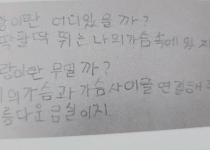 이란 어디있을까?
팔딱 뛰는 나의 가슴속에 있지
랑이란 무얼까?
의 가슴과 가슴사이를 연결해
름다운 금실이지